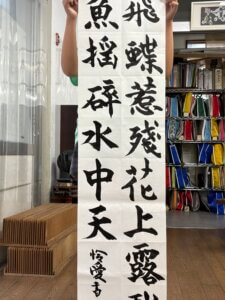 飛蝶惹殘花上露
魚揺碎水中天
怜愛書